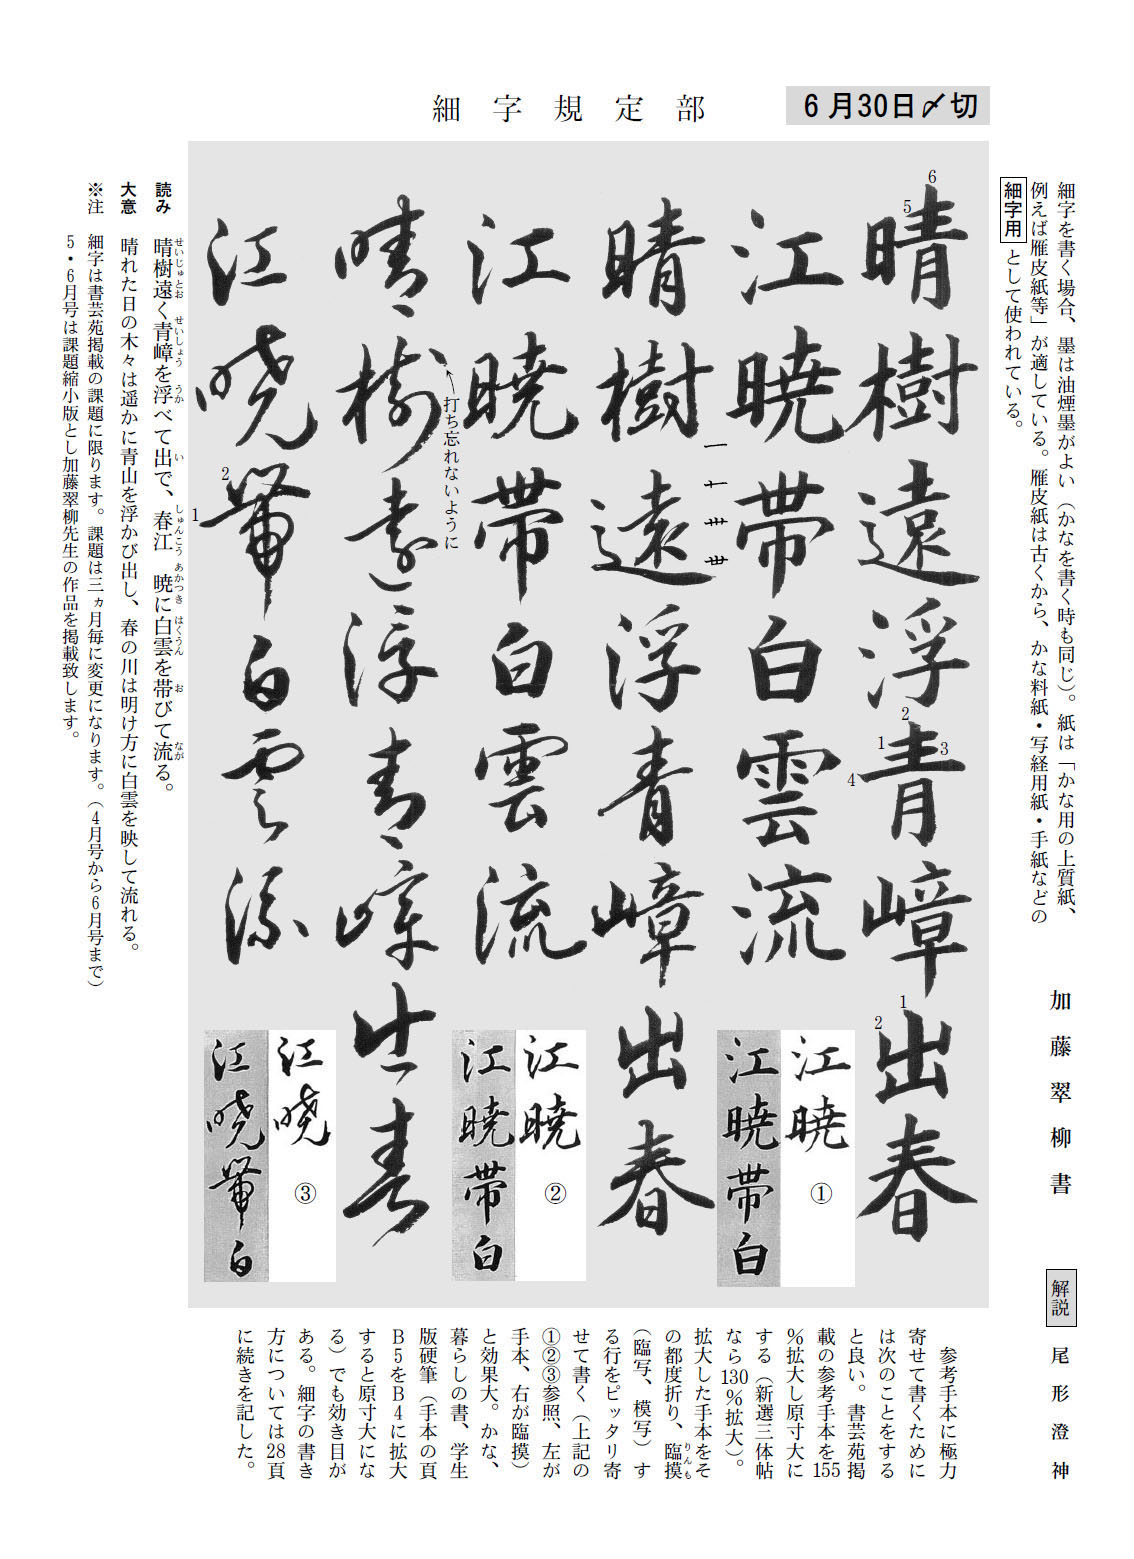 細字規定部
6月30日〆切
細字を書く場合、墨は油煙墨がよい（かなを書く時も同じ）。紙は「かな用の上質紙、
例えば雁皮紙等」が適している。雁皮紙は古くから、かな料紙・写経用紙・手紙などの
細字用として使われている。
加藤翠柳書
6
5
晴樹遠浮青嶂出春
2
1
3
4
1
2
江暁帯白雲流
一
十
卅
丗
晴樹遠浮青嶂出春
江暁帯白雲流
打ち忘れないように
晴樹遠浮青嶂出春
江暁帯白雲流
2
1
江暁
①
江暁帯白
江暁
②
江暁帯白
江暁
③
江暁帯白
読み　晴樹遠く青嶂を浮べて出で、春江　暁に白雲を帯びて流る。
せいじゅとお　せいしょう　うか　い　しゅんこう　あかつき　はくうん　お　なが
大意　晴れた日の木々は遥かに青山を浮かび出し、春の川は明け方に白雲を映して流れる。
※注　細字は書芸苑掲載の課題に限ります。課題は三ヵ月毎に変更になります。（4月号から6月号まで）
5・6月号は課題縮小版とし加藤翠柳先生の作品を掲載致します。
解説　尾形澄神
参考手本に極力
寄せて書くために
は次のことをする
と良い。書芸苑掲
載の参考手本を155
％拡大し原寸大に
する（新選三体帖
なら130％拡大）。
拡大した手本をそ
の都度折り、臨摸
りんも
（臨写、模写）す
る行をピッタリ寄
せて書く（上記の
①②③参照、左が
手本、右が臨摸）
と効果大。かな、
暮らしの書、学生
版硬筆（手本の頁
B5をB4に拡大
すると原寸大にな
る）でも効き目が
ある。細字の書き
方については28頁
に続きを記した。